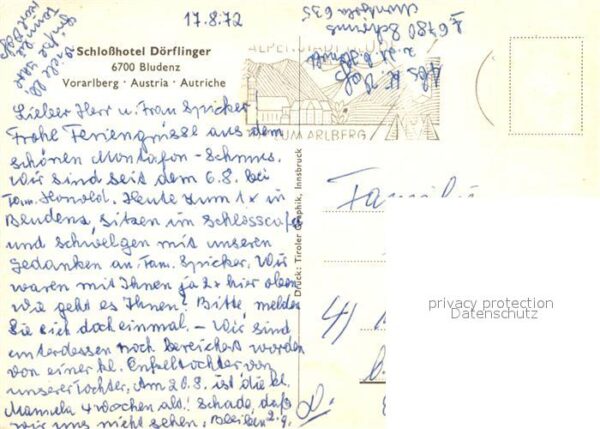 17.8.72
Schloßhotel Dörflinger
6700 Bludenz
Vorarlberg · Austria · Autriche
Lieber Herr u. Frau Spicker!
Frohe Feriengrüsse aus dem
schönen Montafon - Schruns.
Wir sind seit dem 6.8. bei
Fam. Honold. Heute zum 1x in
Bludenz, sitzen im Schlosscafe
und schwelgen mit unseren
Gedanken an Fam. Spicker. Wir
waren mit Ihnen ja 2x hier oben
Wie geht es Ihnen? Bitte, melden
Sie sich doch einmal. - Wir sind
unterdessen noch bereichert worden
von einer kl. Enkeltochter von
unserer Tochter. Am 20.8. ist die kl.
Manuela 4 Wochen alt! Schade, daß
wir uns nicht sehen. Bleiben 2.9.
Viele
6780 Schruns
635
ALPENSTADT BLUDENZ
ZUM ARLBERG
Druck: Tiroler Graphik, Innsbruck
Familie
privacy protection
Datenschutz